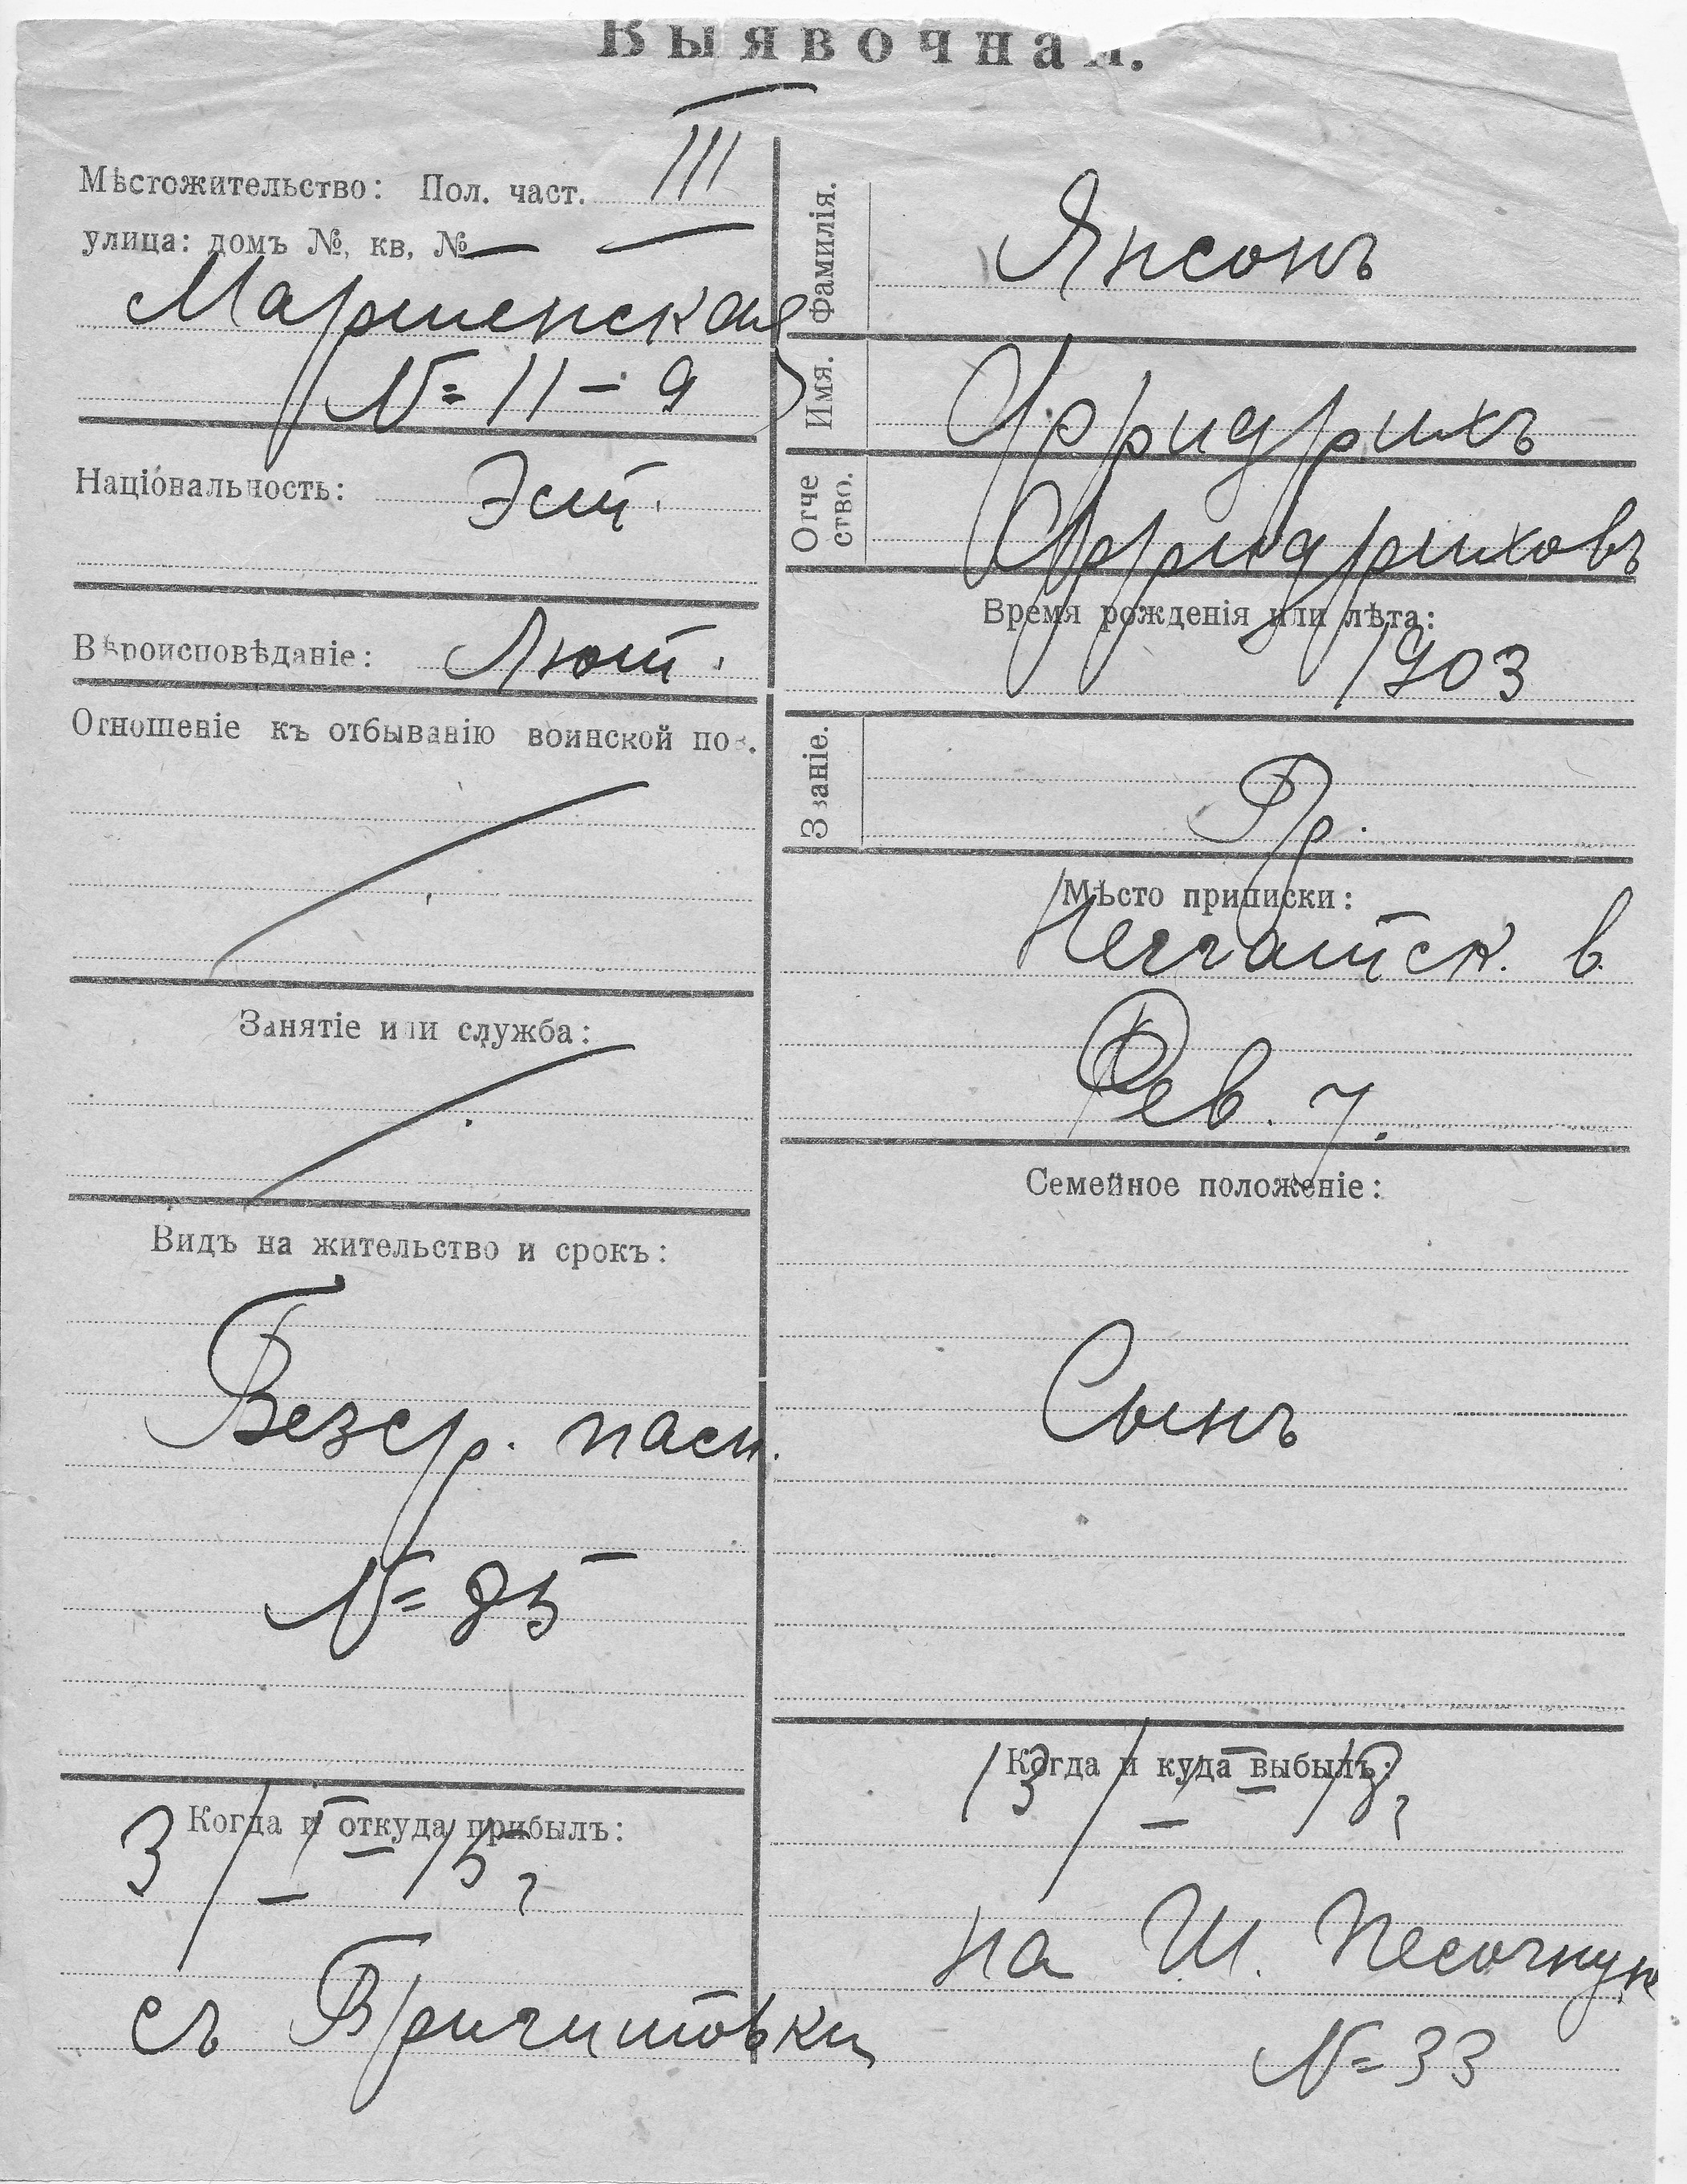 Выявочная.
Мѣстожительство: Пол. част. III
улица: домъ №, кв, №
Мариенская
№ 11 – 9
Національность: Эст.
Вѣроисповѣданіе: Лют.
Отношеніе къ отбыванію воинской пов.
Занятіе или служба:
Видъ на жительство и срокъ:
Безср. пасп.
№ 85
Когда и откуда прибылъ:
3/I 15 г
съ
Фамилія. Янсонъ
Имя. Фридрихъ
Отчество. Фридриховъ
Время рожденія или лѣта:
1903
Званіе. Кр.
Мѣсто приписки:
в.
Рев. у.
Семейное положеніе:
Сынъ
Когда и куда выбылъ:
13/I 18 г
на Ш. Песочную
№ 33